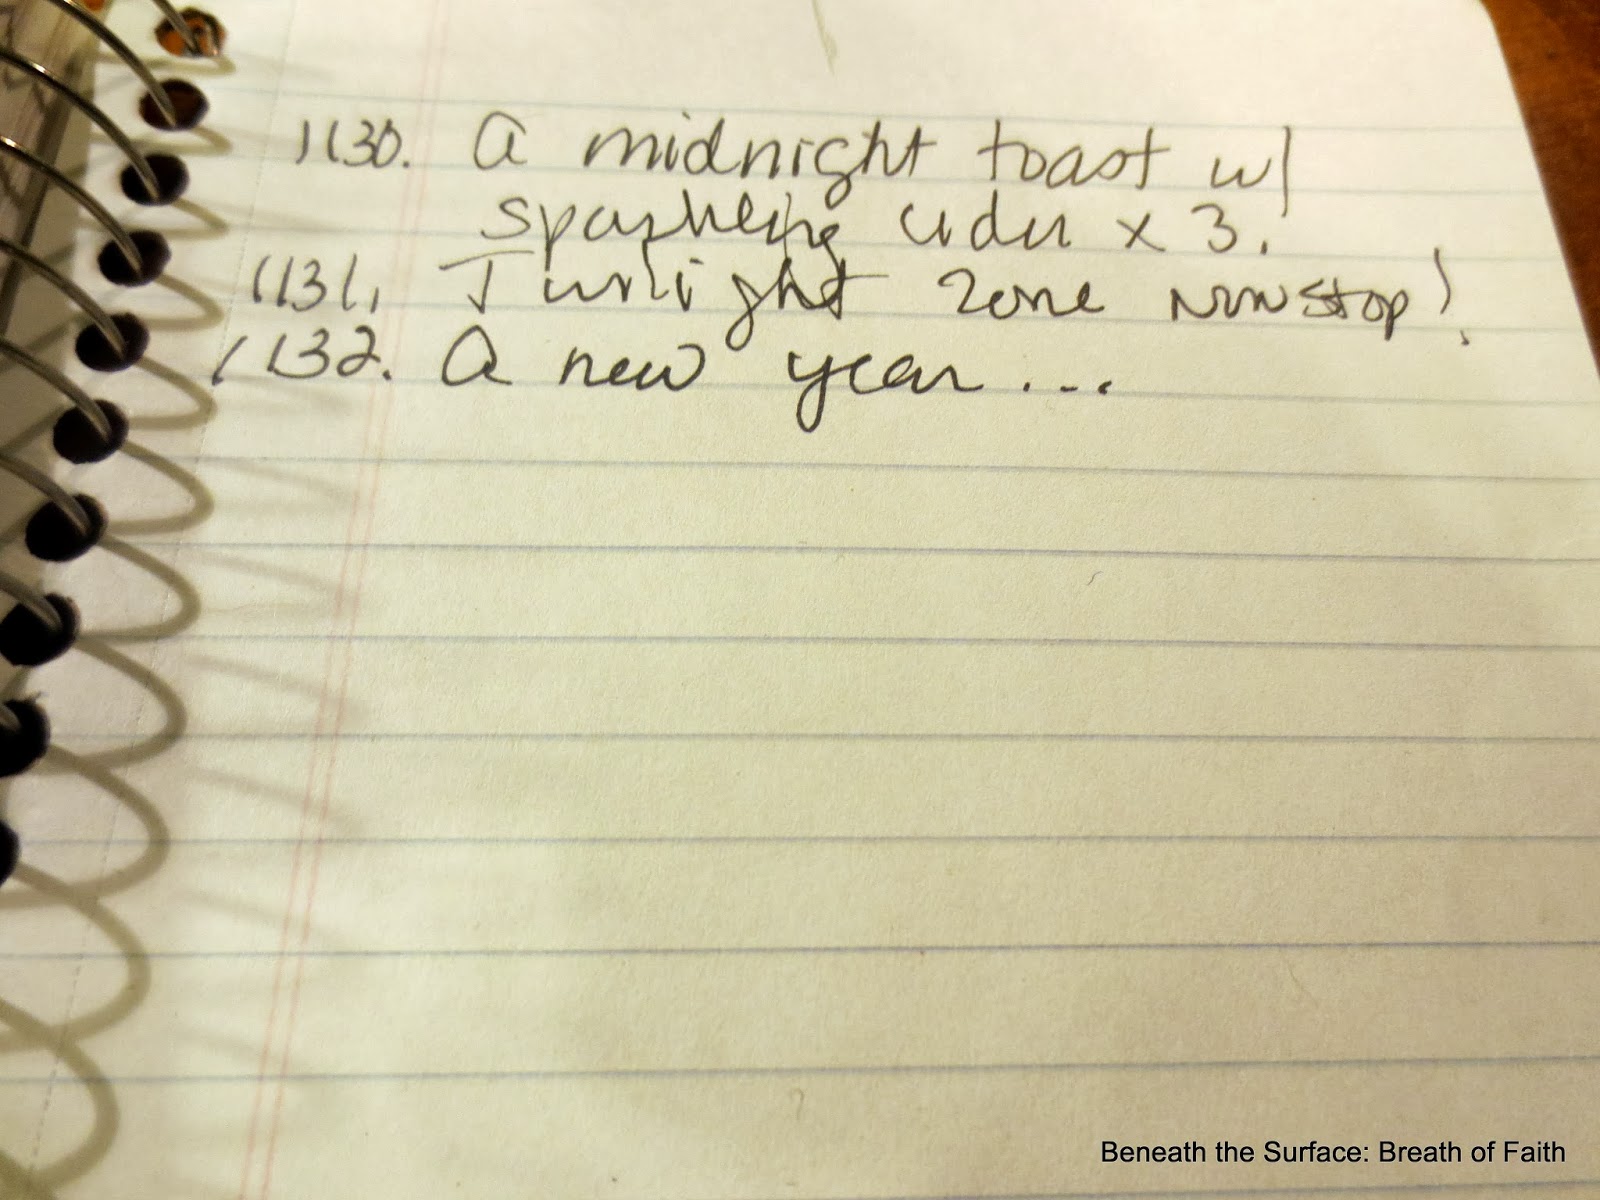 1130. A midnight toast w/
sparkling cider x 3.
1131. Twilight Zone nonstop!
1132. A new year...
Beneath the Surface: Breath of Faith